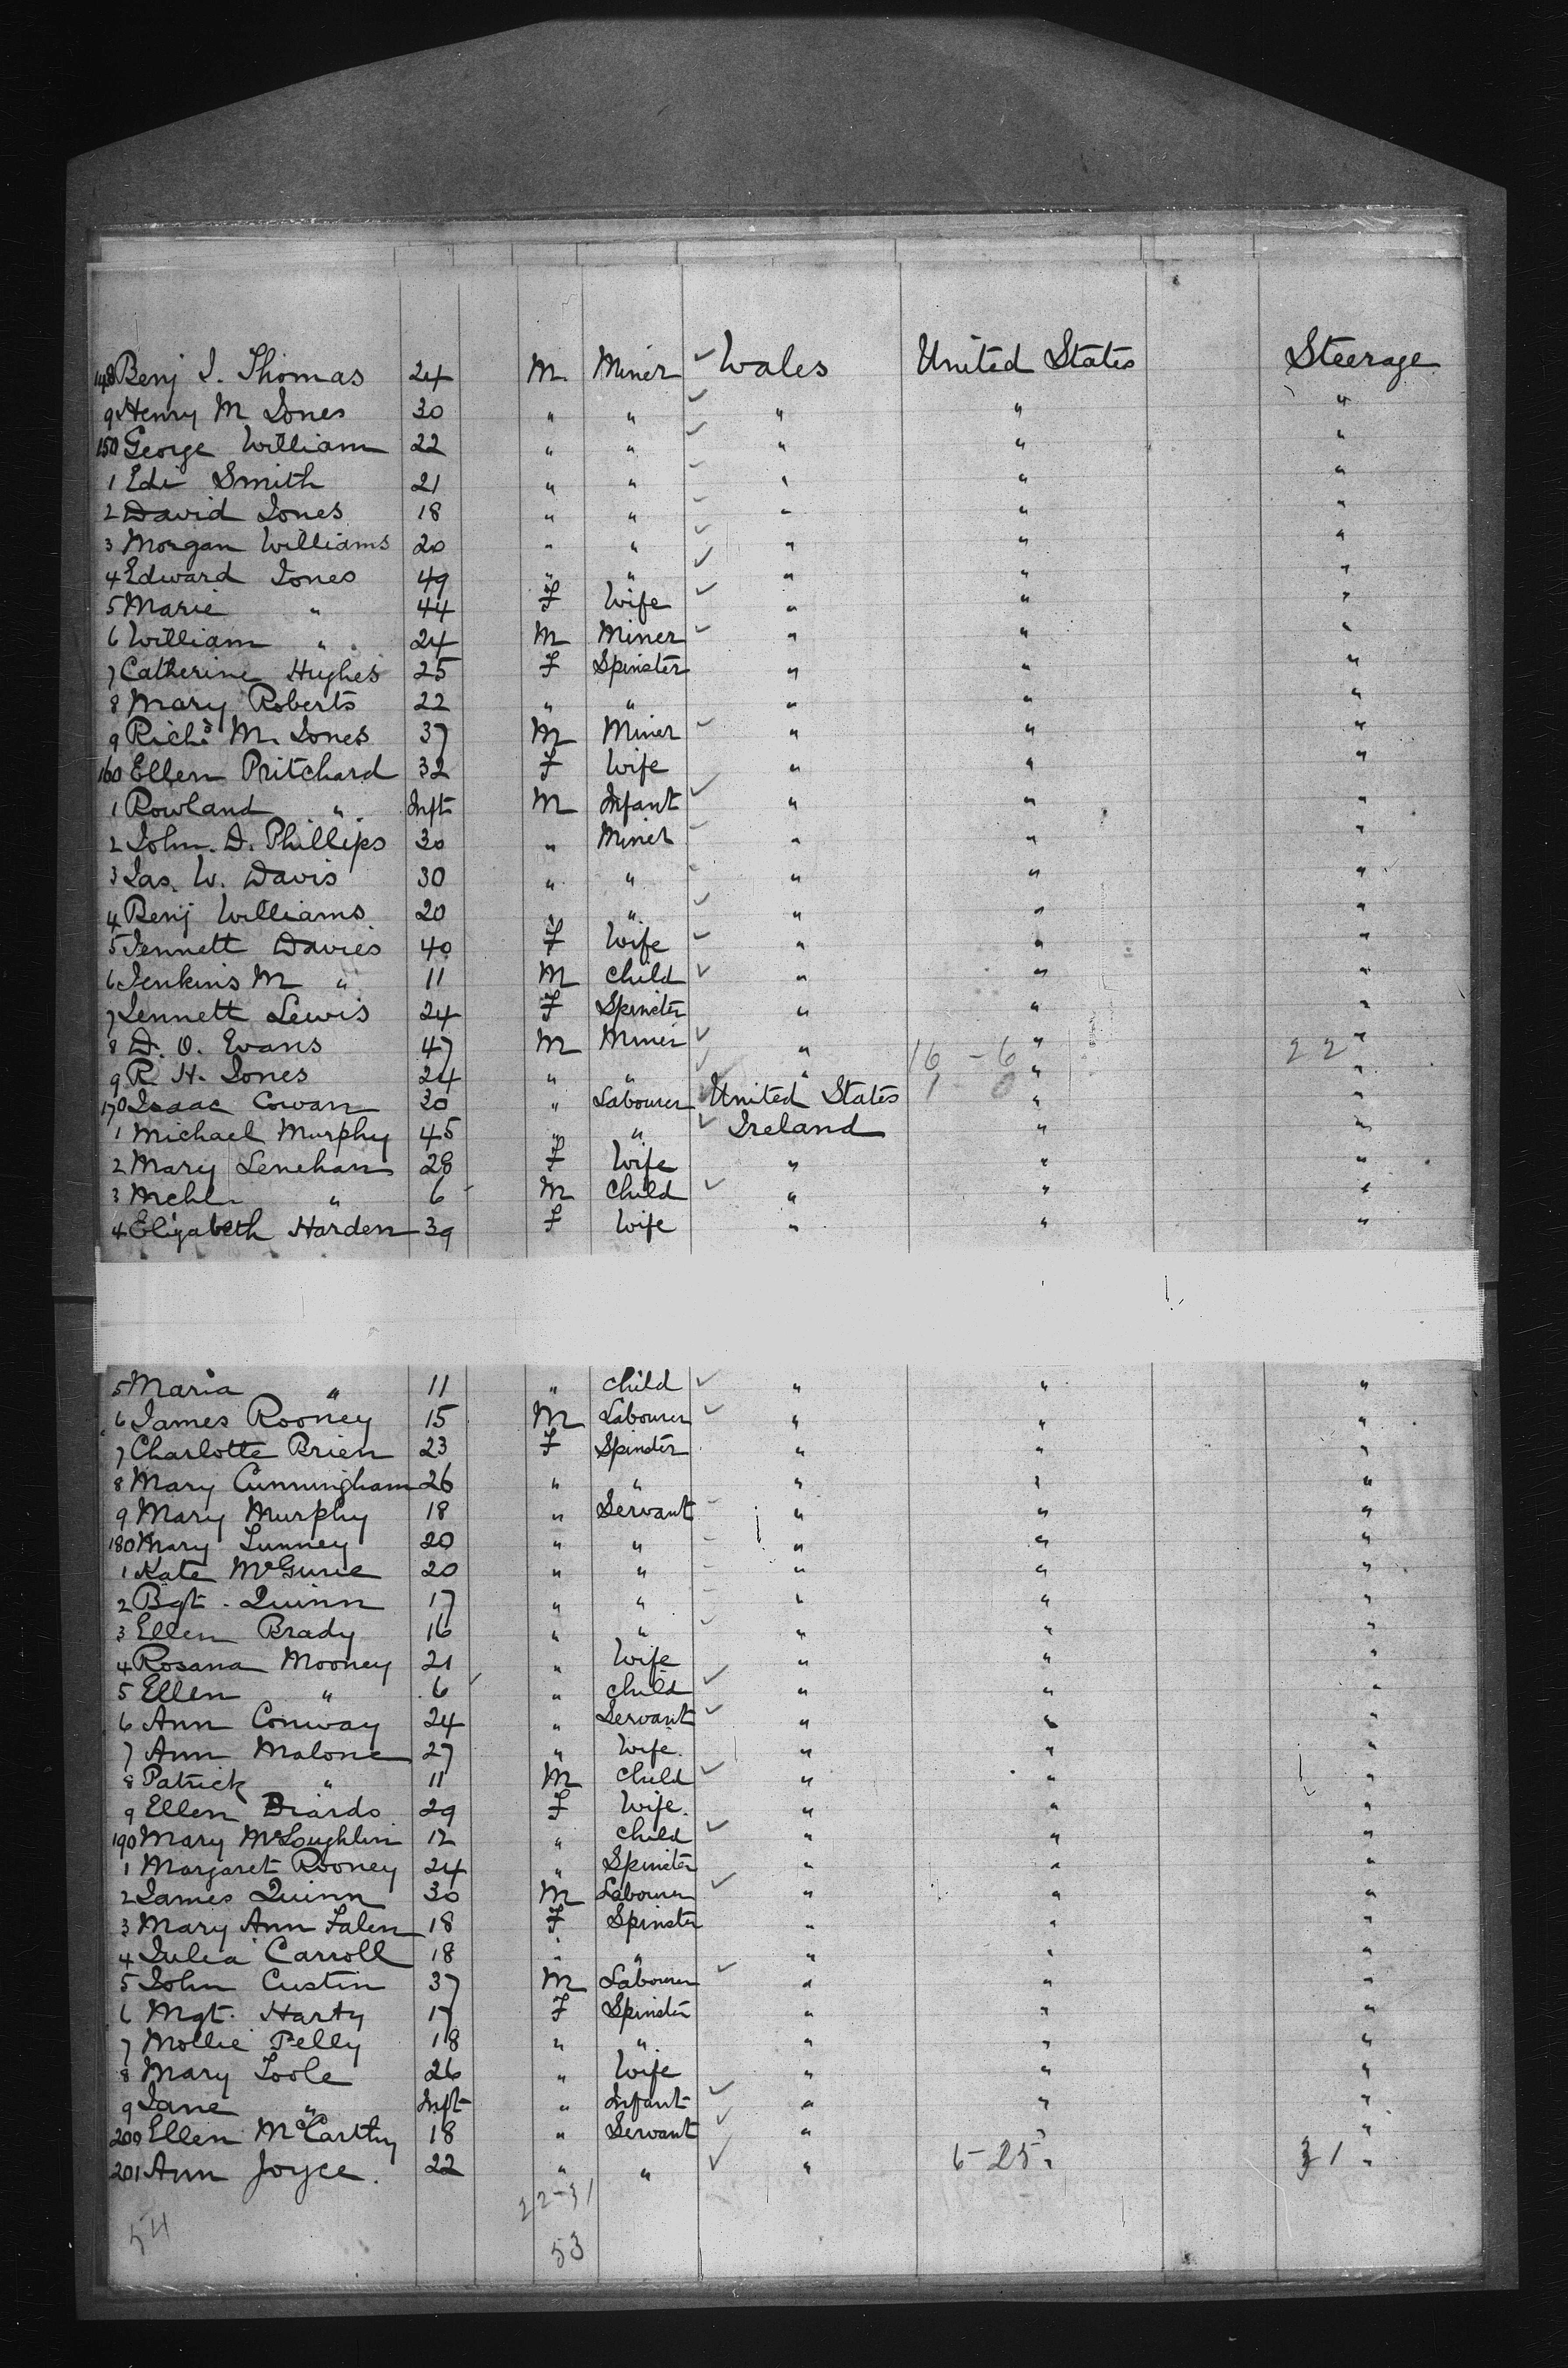 148 Benj I. Thomas 24 M. Miner ✓ Wales United States Steerage
9 Henry M Jones 30 " " ✓ " " "
150 George William 22 " " ✓ " " "
1 Edi Smith 21 " " " " "
2 David Jones 18 " " " " "
3 Morgan Williams 20 " " ✓ " " "
4 Edward Jones 49 " " ✓ " " "
5 Marie " 44 F Wife ✓ " " "
6 William " 24 M Miner ✓ " " "
7 Catherine Hughes 25 F Spinster " " "
8 Mary Roberts 22 " " " " "
9 Richd M. Jones 37 M Miner ✓ " " "
160 Ellen Pritchard 32 F Wife " " "
1 Rowland " Inft M Infant ✓ " " "
2 John. D. Phillips 30 " Miner " " "
3 Jas. W. Davis 30 " " " " "
4 Benj Williams 20 " " ✓ " " "
5 Jennett Davies 40 F Wife ✓ " " "
6 Jenkins M " 11 M Child ✓ " " "
7 Jennett Lewis 24 F Spinster " " "
8 D. O. Evans 47 M Miner ✓ " 16 - 6 " 22 "
9 R. H. Jones 24 " " ✓ " 1 0 " "
170 Isaac Cowan 30 " Labourer ✓ United States " "
1 Michael Murphy 45 " " ✓ Ireland " "
2 Mary Lenehan 28 F Wife " " "
3 Michl. " 6 M Child ✓ " " "
4 Elizabeth Harden 39 F Wife " " "
5 Maria " 11 " Child ✓ " " "
6 James Rooney 15 M Labourer ✓ " " "
7 Charlotte Brien 23 F Spinster " " "
8 Mary Cunningham 26 " " " " "
9 Mary Murphy 18 " Servant " " "
180 Mary Lunney 20 " " " " "
1 Kate McGurie 20 " " " " "
2 Bgt. Quinn 17 " " " " "
3 Ellen Brady 16 " " ✓ " " "
4 Rosana Mooney 21 " Wife " " "
5 Ellen " 6 " Child ✓ " " "
6 Ann Conway 24 " Servant ✓ " " "
7 Ann Malone 27 " Wife. " " "
8 Patrick " 11 M Child ✓ " " "
9 Ellen 29 F Wife. " " "
190 Mary McLoughlin 12 " Child ✓ " " "
1 Margaret Rooney 24 " Spinster " " "
2 James Quinn 30 M Labourer ✓ " " "
3 Mary Ann Falen 18 F Spinster " " "
4 Julia Carroll 18 " " " " "
5 John Custin 37 M Labourer ✓ " " "
6 Mgt. Harty 17 F Spinster " " "
7 Mollie Pelly 18 " " " " "
8 Mary Toole 26 " Wife " " "
9 Jane " Inft " Infant ✓ " " "
200 Ellen McCarthy 18 " Servant ✓ " " "
201 Ann Joyce. 22 " " ✓ " 6-25 " 31 "
22-31
54 53